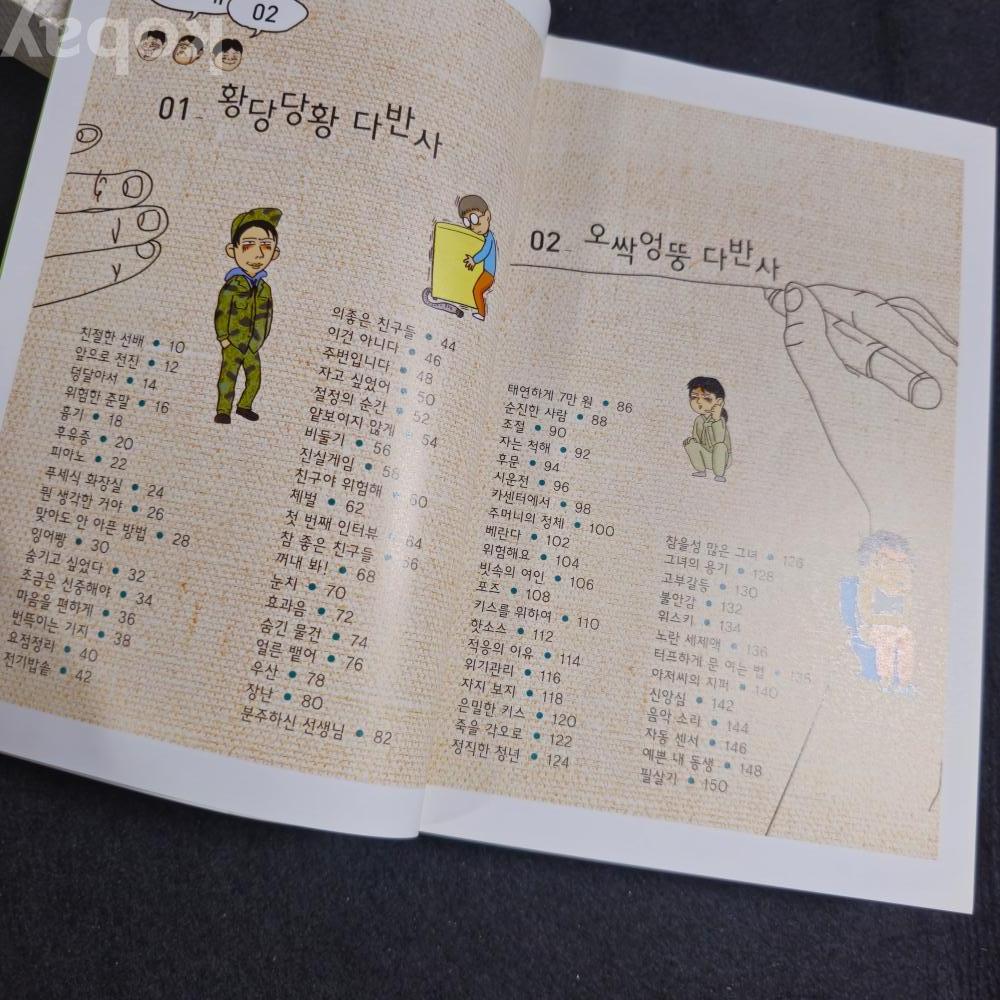 kobay
02
01_ 황당당황 다반사
친절한 선배 • 10
앞으로 전진 • 12
덩달아서 • 14
위험한 준말 • 16
흉기 • 18
후유증 • 20
피아노 • 22
푸세식 화장실 • 24
뭔 생각한 거야 • 26
맞아도 안 아픈 방법 • 28
잉어빵 • 30
숨기고 싶었다 • 32
조금은 신중해야 • 34
마음을 편하게 • 36
번뜩이는 기지 • 38
요점정리 • 40
전기밥솥 • 42
의좋은 친구들 • 44
이건 아니다 • 46
주번입니다 • 48
자고 싶었어 • 50
절정의 순간 • 52
얕보이지 않게 • 54
비둘기 • 56
진실게임 • 58
친구야 위험해 • 60
체벌 • 62
첫 번째 인터뷰 • 64
참 좋은 친구들 • 66
꺼내 봐! • 68
눈치 • 70
효과음 • 72
숨긴 물건 • 74
얼른 뱉어 • 76
우산 • 78
장난 • 80
분주하신 선생님 • 82
02_ 오싹엉뚱 다반사
태연하게 7만 원 • 86
순진한 사람 • 88
조절 • 90
자는 척해 • 92
후문 • 94
시운전 • 96
카센터에서 • 98
주머니의 정체 • 100
베란다 • 102
위험해요 • 104
빗속의 여인 • 106
포즈 • 108
키스를 위하여 • 110
핫소스 • 112
적응의 이유 • 114
위기관리 • 116
자지 보지 • 118
은밀한 키스 • 120
죽을 각오로 • 122
정직한 청년 • 124
참을성 많은 그녀 • 126
그녀의 용기 • 128
고부갈등 • 130
불안감 • 132
위스키 • 134
노란 세제액 • 136
터프하게 문 여는 법 • 138
아저씨의 지퍼 • 140
신앙심 • 142
음악 소리 • 144
자동 센서 • 146
예쁜 내 동생 • 148
필살기 • 150